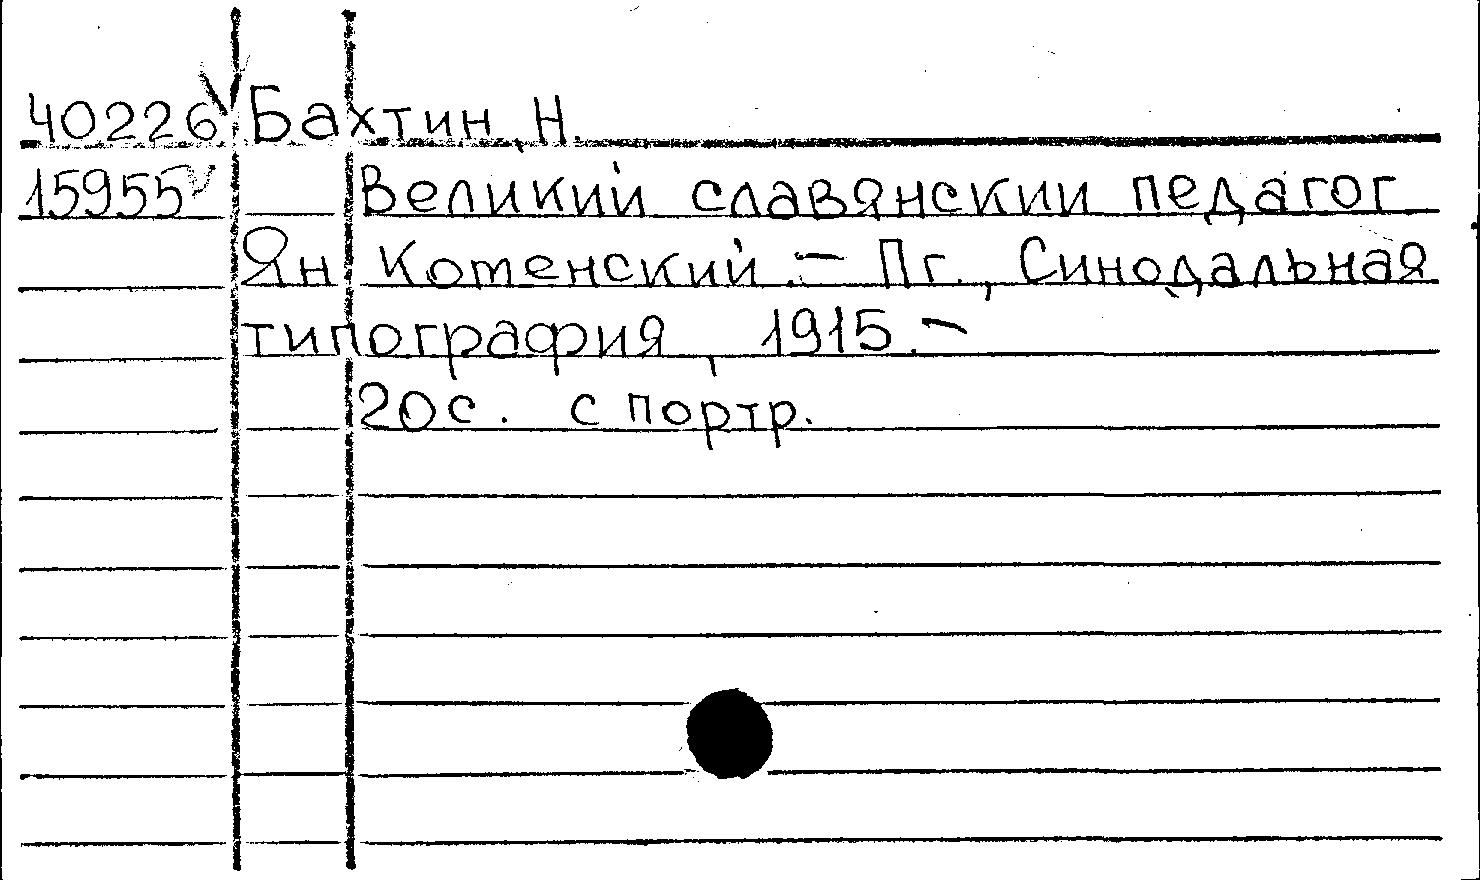 40226 Бахтин, Н.
15955 Великий славянский педагог
Ян Коменский. – Пг., Синодальная
типография, 1915. –
20 с. с портр.